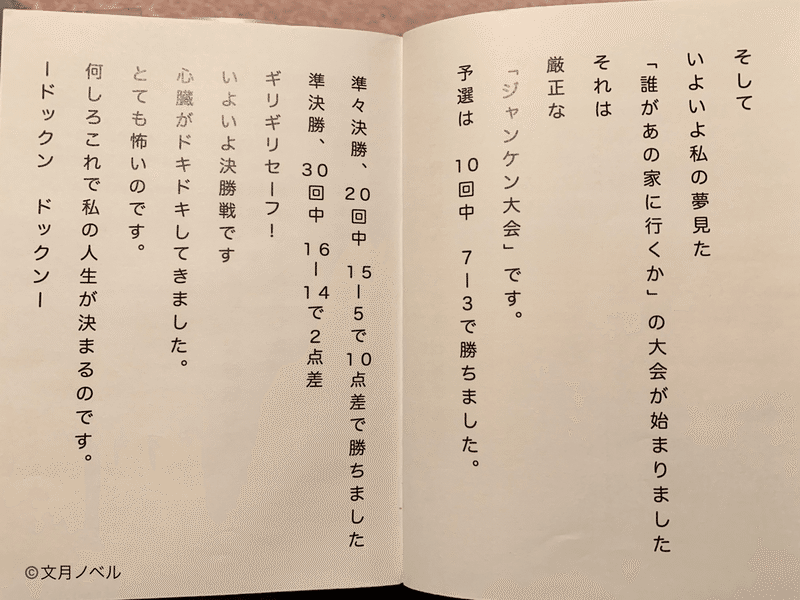 そして
いよいよ私の夢見た
「誰があの家に行くか」の大会が始まりました
それは
厳正な
「ジャンケン大会」です。
予選は 10回中 7ー3で勝ちました。
準々決勝、20回中 15ー5で10点差で勝ちました
準決勝、30回中 16ー14で2点差
ギリギリセーフ!
いよいよ決勝戦です
心臓がドキドキしてきました。
とても怖いのです。
何しろこれで私の人生が決まるのです。
ードックン ドックンー
©文月ノベル